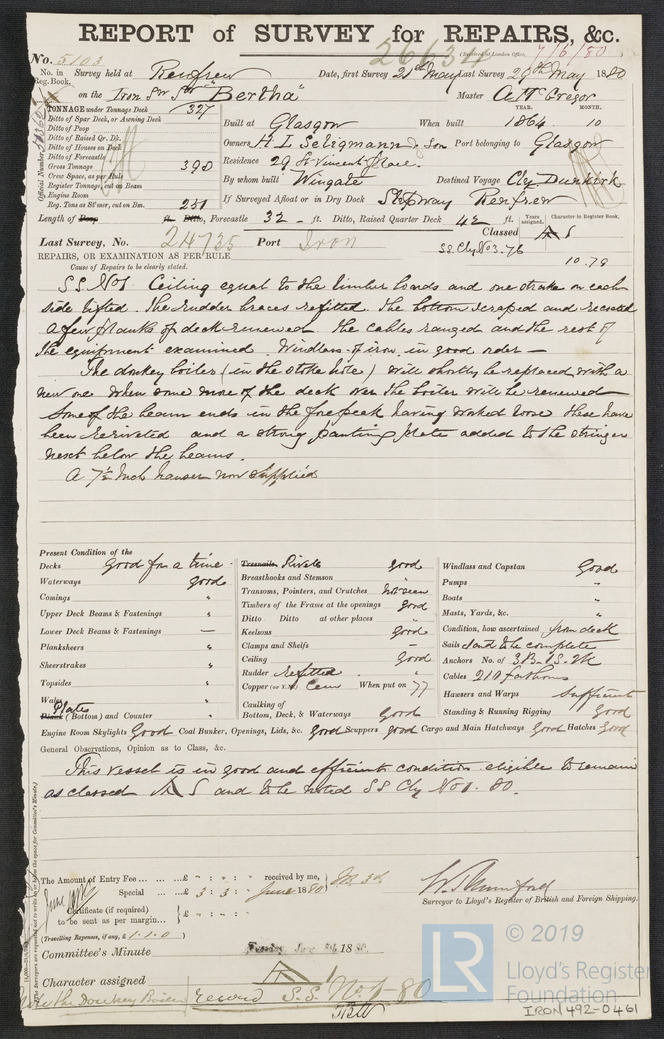 REPORT of SURVEY for REPAIRS, &c.
No. 5103 26634 (Received at London Office, 7/6/80
No. in Reg. Book. Survey held at Renfrew Date, first Survey 21st May Last Survey 29th May 1880
on the Iron Scr Str "Bertha" Master A. McGregor
TONNAGE under Tonnage Deck 327
Ditto of Spar Deck, or Awning Deck
Ditto of Poop
Ditto of Raised Qr. Dk.
Ditto of Houses on Deck
Ditto of Forecastle
Gross Tonnage 390
Crew Space, as per Rule
Register Tonnage, cut on Beam
Engine Room
Reg. Tons as St'mer, cut on Bm. 251
Official Number
YEAR. MONTH.
Built at Glasgow When built 1864 10
Owners H. L. Seligmann & Son Port belonging to Glasgow
Residence 29 St Vincent Place.
By whom built Wingate Destined Voyage Cly. Dunkirk
If Surveyed Afloat or in Dry Dock Slipway Renfrew
Length of Poop ft. Ditto, Forecastle 32 ft. Ditto, Raised Quarter Deck 42 ft.
Years assigned. Character in Register Book,
Classed A 1
SS. Cly No3. 76
10.79
Last Survey, No. 24735 Port Iron
REPAIRS, OR EXAMINATION AS PER RULE
Cause of Repairs to be clearly stated.
S.S. No1 Ceiling equal to the limber boards and one strake on each
side lifted. The rudder braces refitted. The bottom scraped and recoated
a few planks of deck renewed. The cables ranged and the rest of
the equipment examined. Windlass of iron in good order—
The donkey boiler (in the stoke hole) will shortly be replaced with a
new one when some more of the deck over the boiler will be renewed
Some of the beam ends in the forepeak having worked loose these have
been rerivetted and a strong panting plate added to the stringer
next below the beams.
A 7½ inch hawser now supplied
Present Condition of the
Decks Good for a time
Waterways good
Comings "
Upper Deck Beams & Fastenings "
Lower Deck Beams & Fastenings —
Planksheers "
Sheerstrakes "
Topsides "
Wales "
Plates
Plank (Bottom) and Counter "
Treenails Rivets good
Breasthooks and Stemson
Transoms, Pointers, and Crutches not seen
Timbers of the Frame at the openings good
Ditto Ditto at other places "
Keelsons Good
Clamps and Shelfs
Ceiling Good
Rudder refitted "
Copper (or Y.M.) Cem When put on 77
Caulking of
Bottom, Deck, & Waterways Good
Windlass and Capstan Good
Pumps "
Boats "
Masts, Yards, &c. "
Condition, how ascertained from deck
Sails said to be complete
Anchors No. of 3B. 1S. 2K
Cables 210 fathoms
Hawsers and Warps Sufficient
Standing & Running Rigging Good
Engine Room Skylights Good Coal Bunker, Openings, Lids, &c. Good Scuppers good Cargo and Main Hatchways Good Hatches Good
General Observations, Opinion as to Class, &c.
This vessel is in good and efficient condition eligible to remain
as classed A 1 and to be noted SS Cly No 1. 80.
The Amount of Entry Fee ... ... ... £ " : " : " received by me,
Special ... £ 3 : 3 : " June 1880
Certificate (if required)
to be sent as per margin... } £ " : " : "
(Travelling Expenses, if any, £ 1-1-0 )
W. S. Mumford
Surveyor to Lloyd's Register of British and Foreign Shipping.
Committee's Minute Tuesday June 8th 1880.
Character assigned A 1
Note the Donkey Boiler record S.S. No. 1-80
LR © 2019
Lloyd's Register
Foundation
IRON492-0461